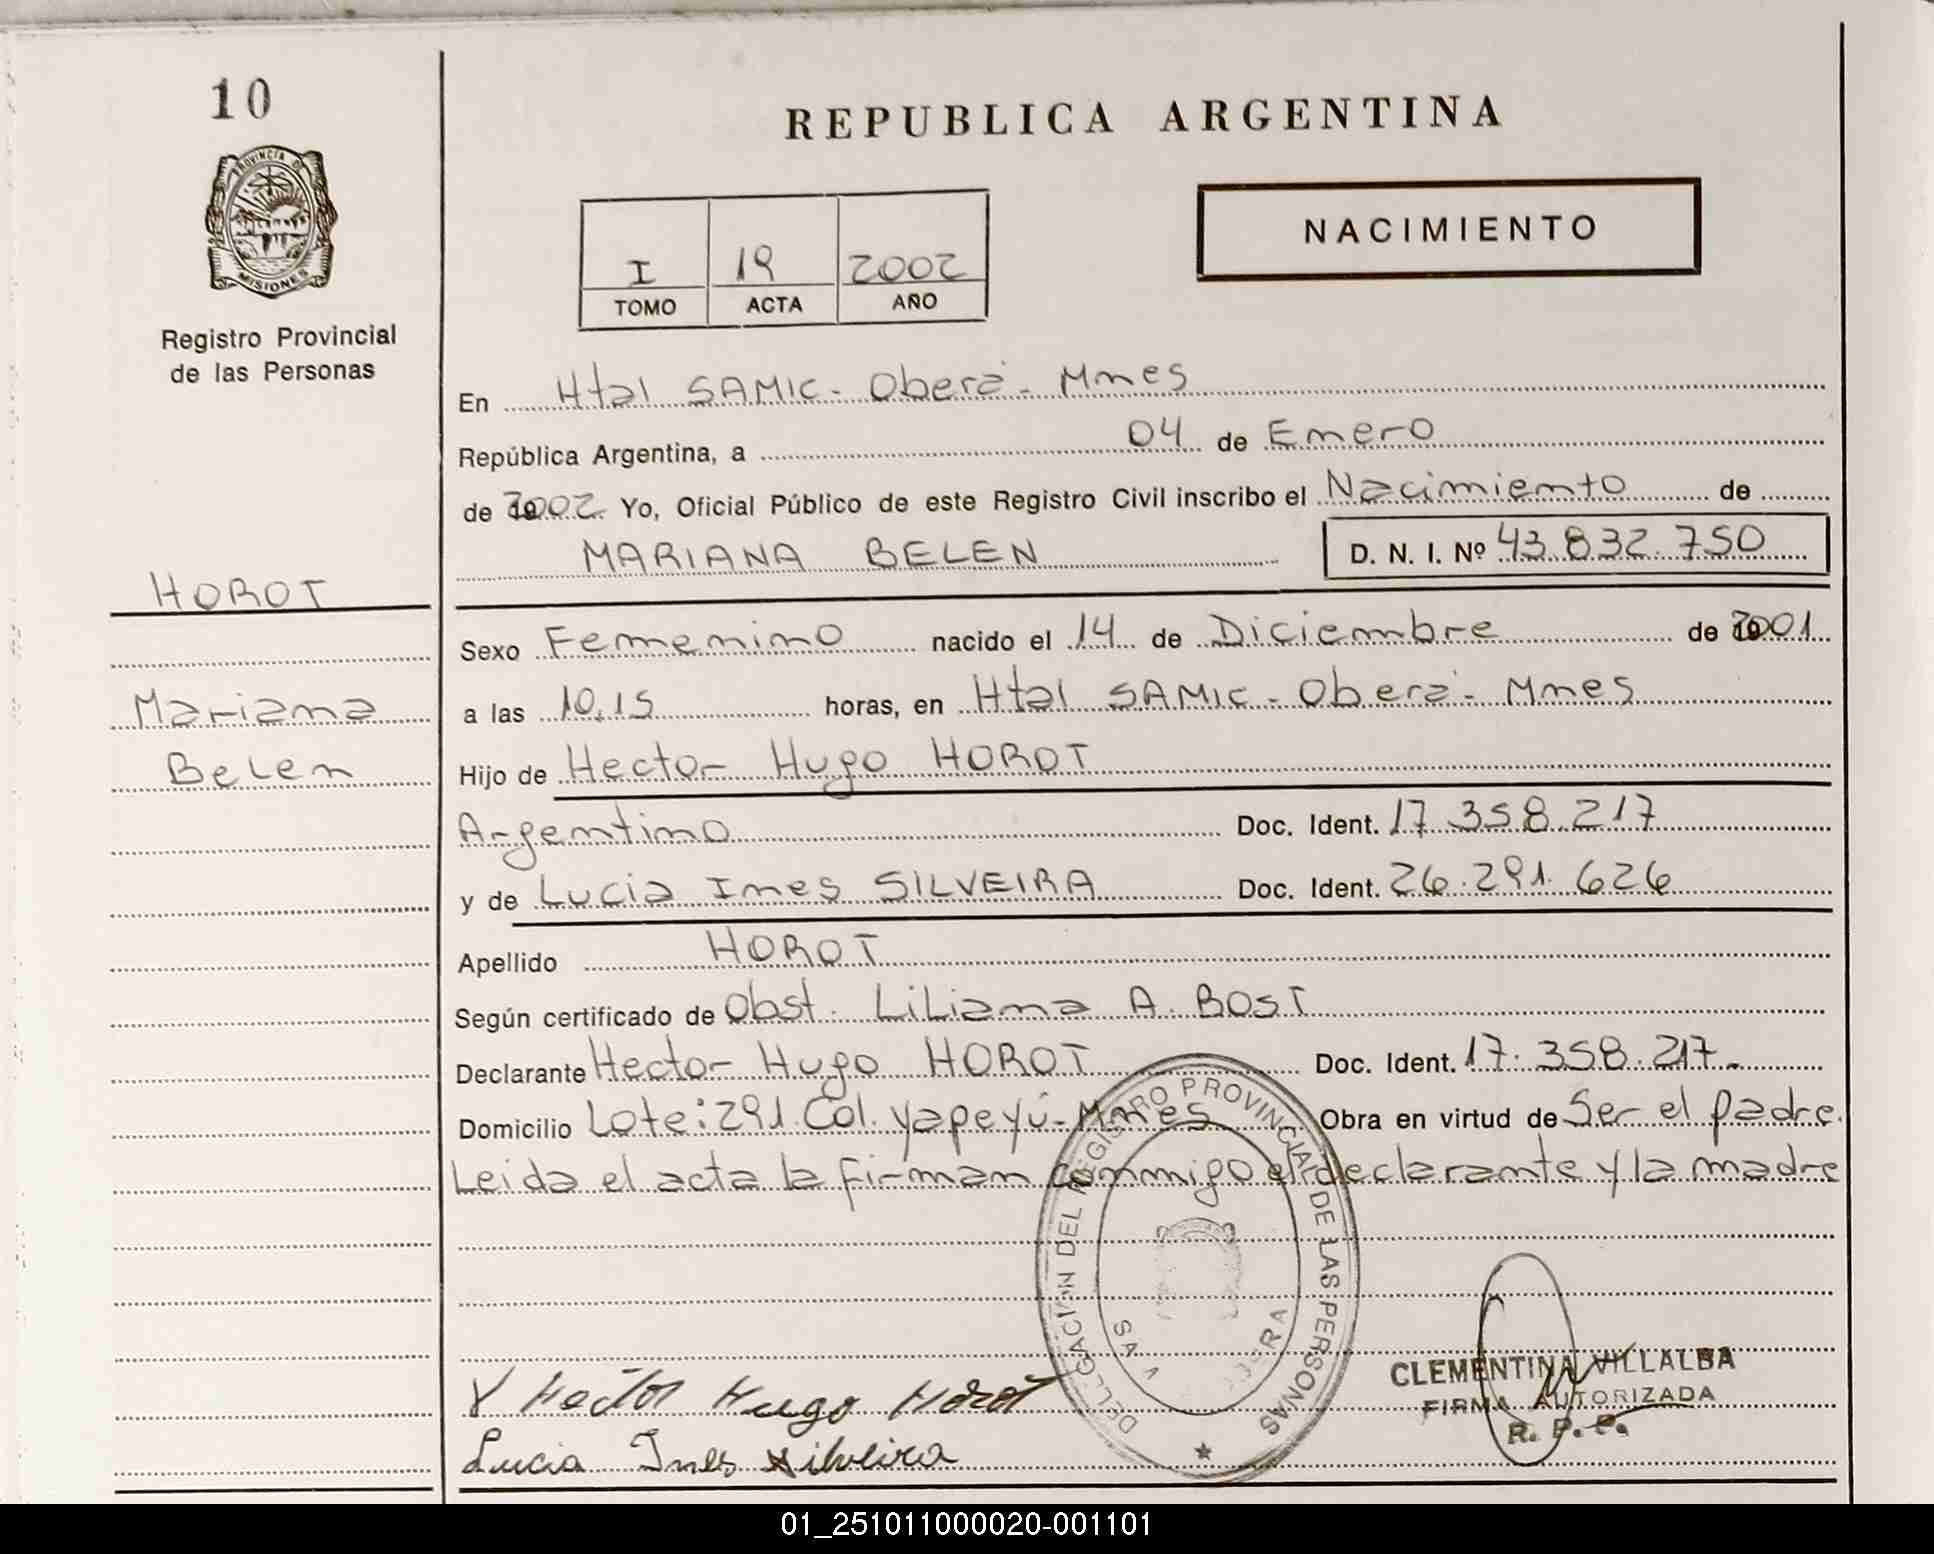 10
PROVINCIA DE
MISIONES
Registro Provincial
de las Personas
HOROT
Mariana
Belen
REPUBLICA ARGENTINA
I 19 2002
TOMO ACTA AÑO
NACIMIENTO
En Htal SAMIC - Oberá - Mnes
República Argentina, a 04 de Enero
de 2002 Yo, Oficial Público de este Registro Civil inscribo el Nacimiento de
MARIANA BELEN D. N. I. Nº 43.832.750
Sexo Femenino nacido el 14 de Diciembre de 2001
a las 10,15 horas, en Htal SAMIC - Oberá - Mnes
Hijo de Hector Hugo HOROT
Argentino Doc. Ident. 17.358.217
y de Lucia Ines SILVEIRA Doc. Ident. 26.291.626
Apellido HOROT
Según certificado de Obst. Liliana A. BOST
Declarante Hector Hugo HOROT Doc. Ident. 17.358.217.-
Domicilio Lote: 291 Col. Yapeyú - Mnes Obra en virtud de Ser el padre.
Leida el acta la firman conmigo el declarante y la madre
DELEGACION DEL REGISTRO PROVINCIAL DE LAS PERSONAS
Hector Hugo Horot
Lucia Ines Silveira
CLEMENTINA VILLALBA
FIRMA AUTORIZADA
R. P. P.
01_251011000020-001101